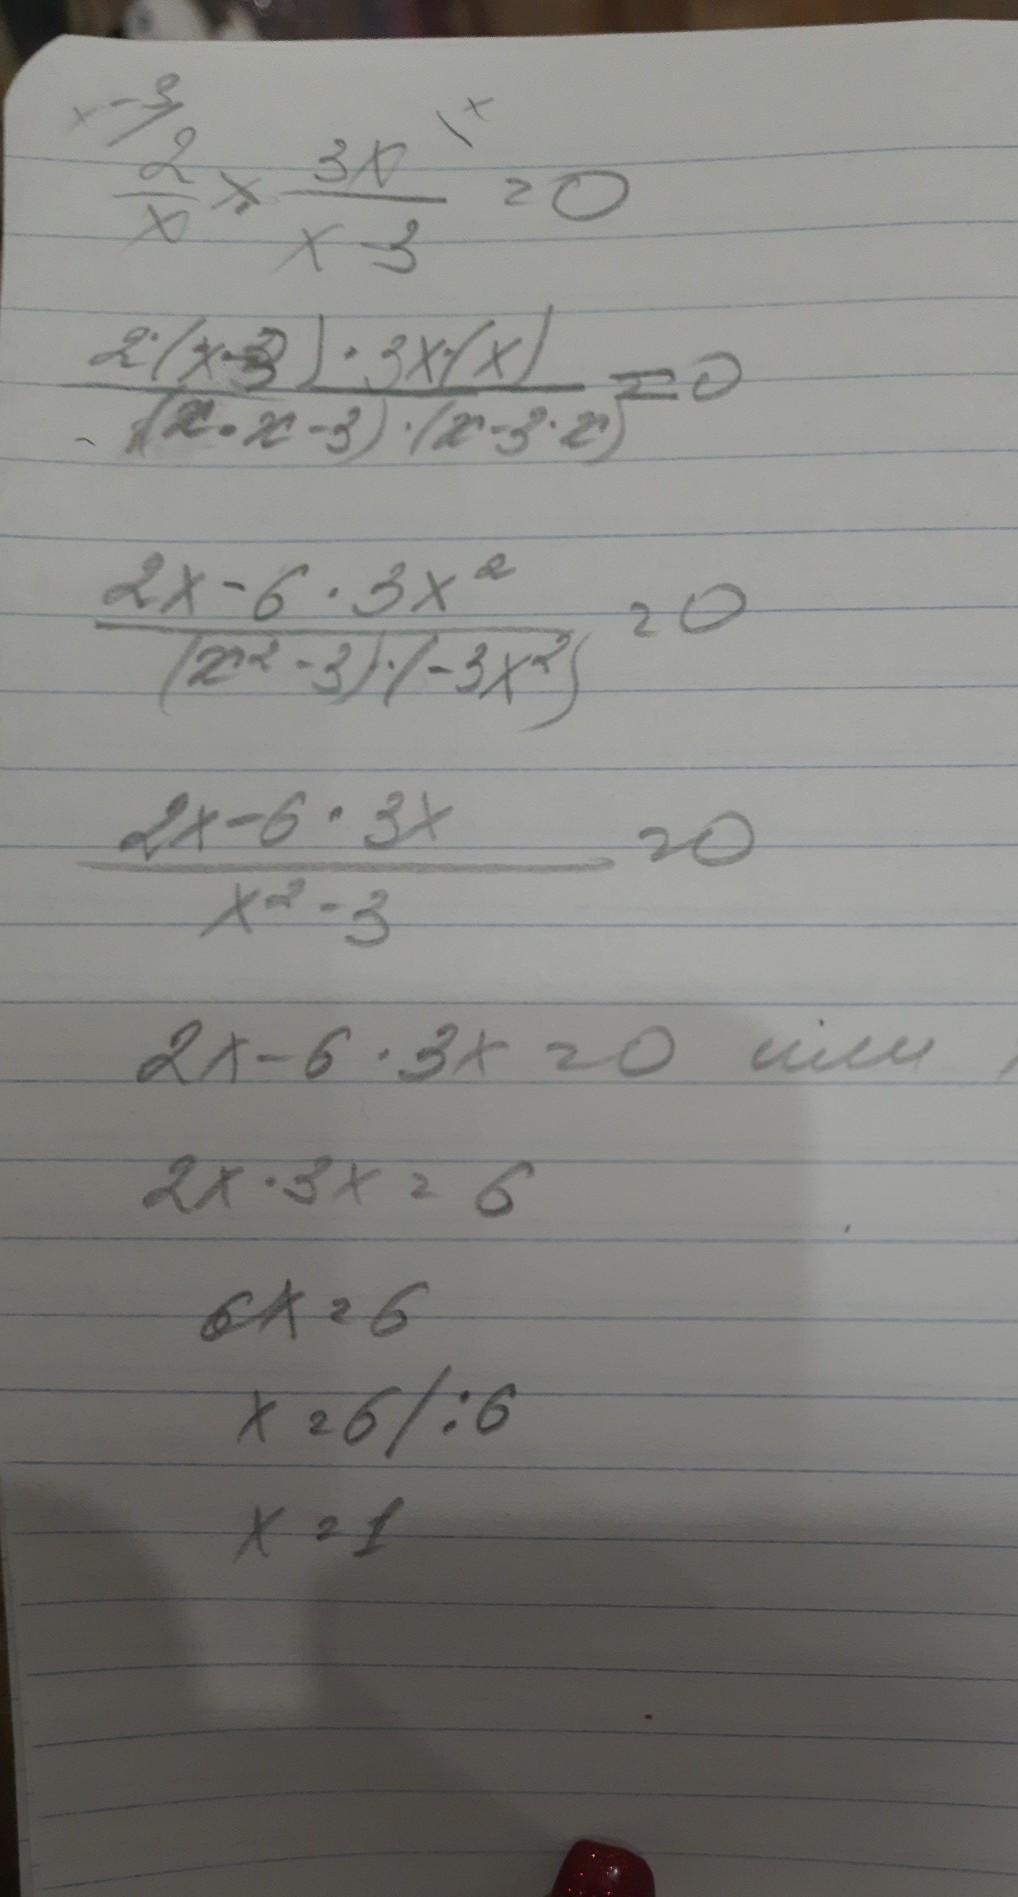 x-3/ \x
2/x × 3x/(x-3) = 0
2·(x-3)·3x·(x) / (x·x-3)·(x-3·x) = 0
2x-6·3x² / (x²-3)·(-3x²) = 0
2x-6·3x / x²-3 = 0
2x-6·3x=0 или
2x·3x=6
6x=6
x=6/:6
x=1